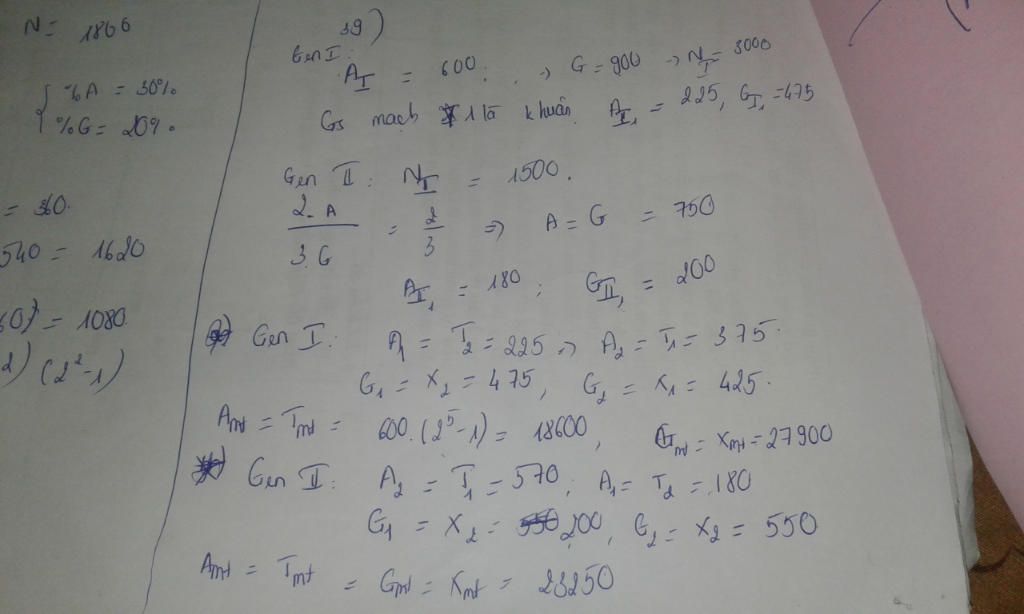 N = 1800
%A = 30%
%G = 20%
= 360.
540 = 1620
60) = 1080
2) (2² - 1)
39)
Gen I:
A_I = 600; → G = 900 → N_I = 3000
Gs mạch 1 là khuôn. A_I₁ = 225, G_I₁ = 475
Gen II: N_II = 1500.
2. A / 3. G = 2/3 => A = G = 750
A_II₁ = 180; G_II₁ = 200
Gen I: A₁ = T₂ = 225 => A₂ = T₁ = 375
G₁ = X₂ = 475, G₂ = X₁ = 425.
Amt = Tmt = 600. (2⁵ - 1) = 18600, Gmt = Xmt = 27900
Gen II: A₂ = T₁ = 570; A₁ = T₂ = 180
G₁ = X₂ = 200, G₂ = X₂ = 550
Amt = Tmt = Gmt = Xmt = 23250